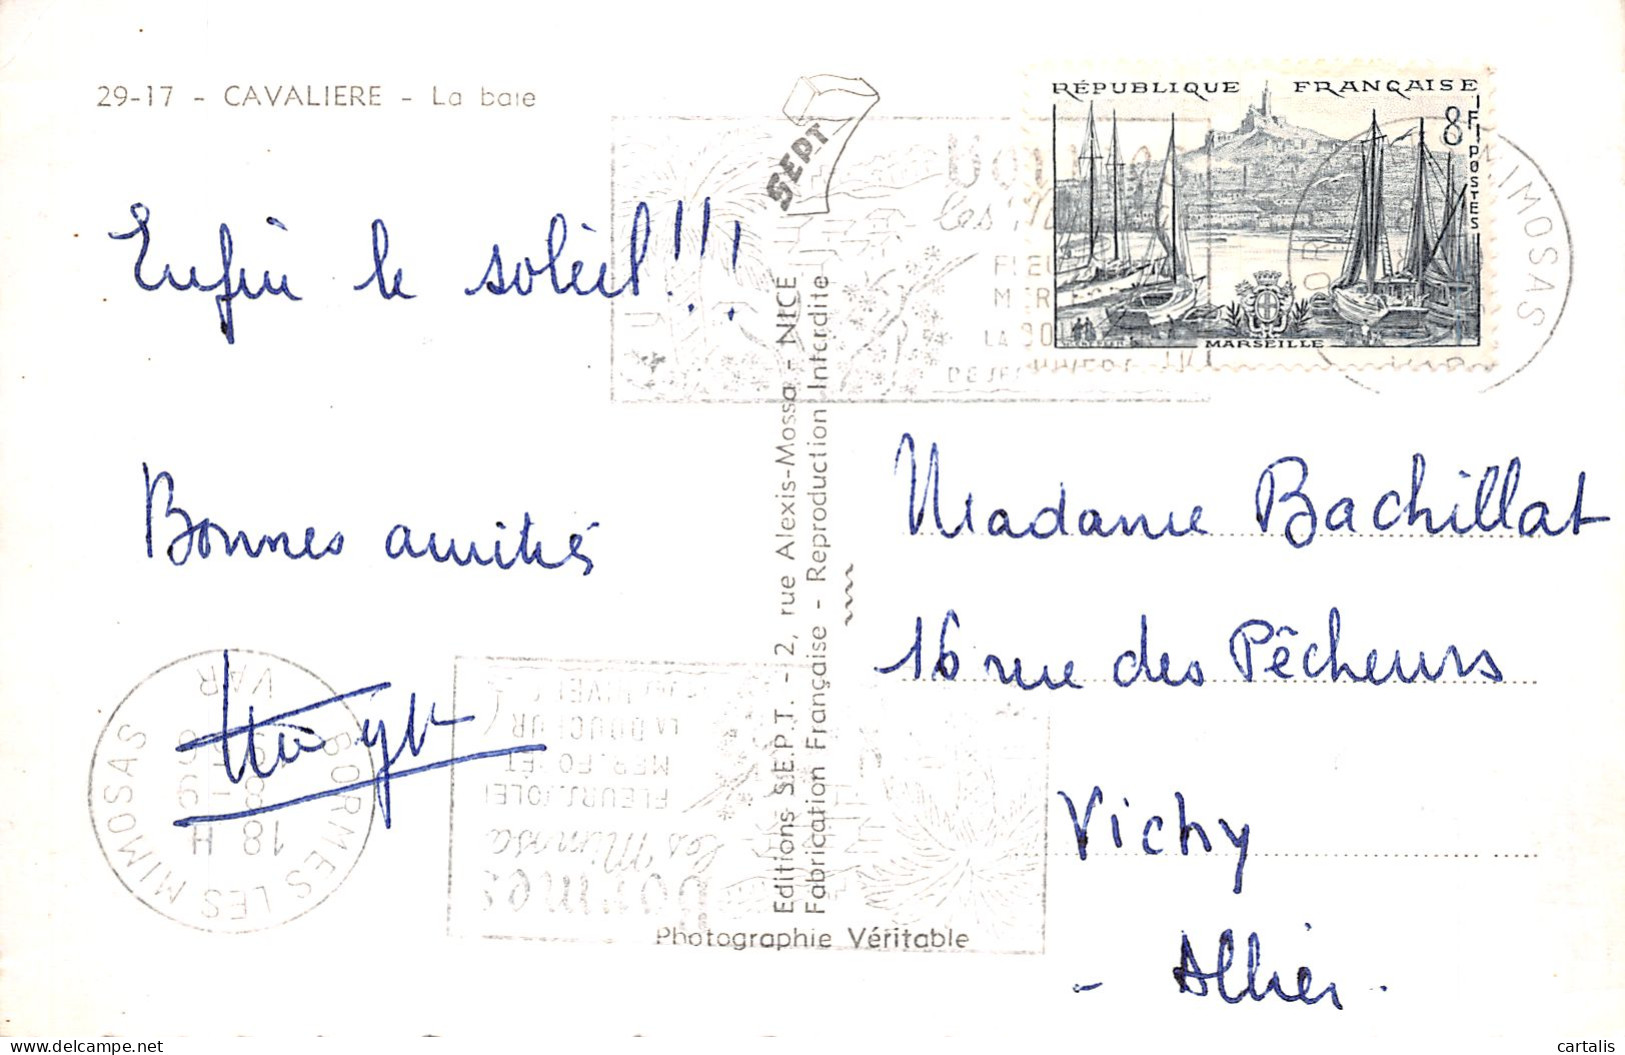 29-17 - CAVALIERE - La baie
SEPT
RÉPUBLIQUE FRANÇAISE
8F
POSTES
MARSEILLE
MIMOSAS
Enfin le soleil!!!
Bonnes amitiés
Editions S.E.P.T. - 2, rue Alexis-Mossa - NICE
Fabrication Française - Reproduction Interdite
Madame Bachillat
16 rue des Pêcheurs
Vichy
- Allier.
BORMES LES MIMOSAS
18 H
VAR
bormes
les Mimosa
LA DOUCEUR
Photographie Véritable
cartalis